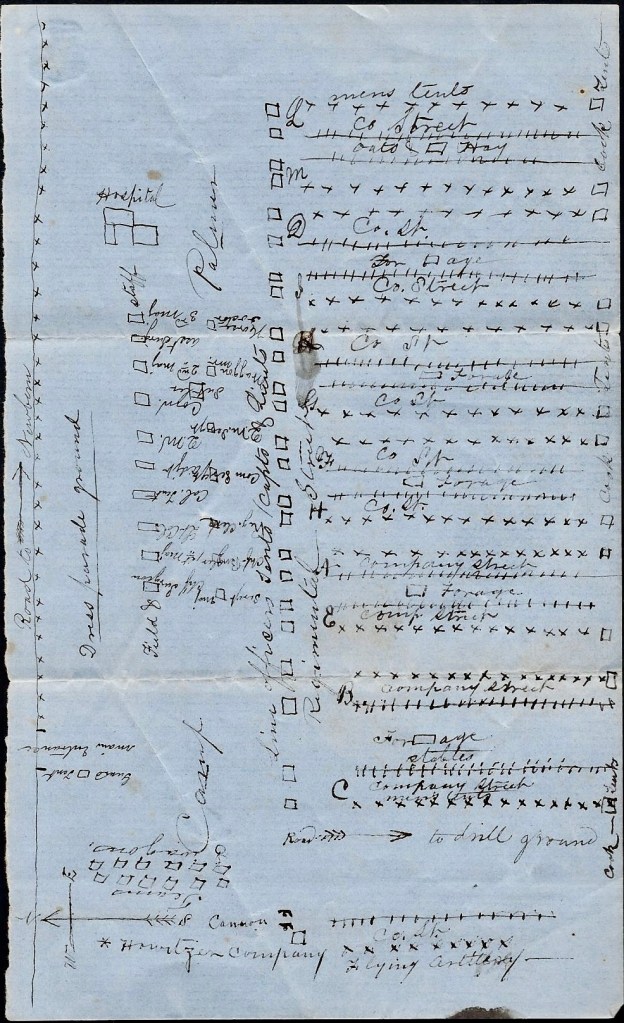 mens tents
L
Co Street
oats & Hay
M
D
Co. St.
For age
Co. Street
Co St
Forage
Co St
G
Co St
Forage
Co. St.
A
Company Street
Forage
E
Comp Street
B
Company Street
For age
stables
C
Company Street
Road
to drill ground
Co. St.
Flying Artillery
Cook Tents
Cook Tents
Cook Tents
Hospital
staff
Field &
Line officers tents Capts & Lieuts
Regimental Street
Camp Palmer
Dress parade ground
Road to Newbern
Main Entrance
Guard Tent
Teams & wagons,
N
E
W
S
Cannon
* Howitzer Company